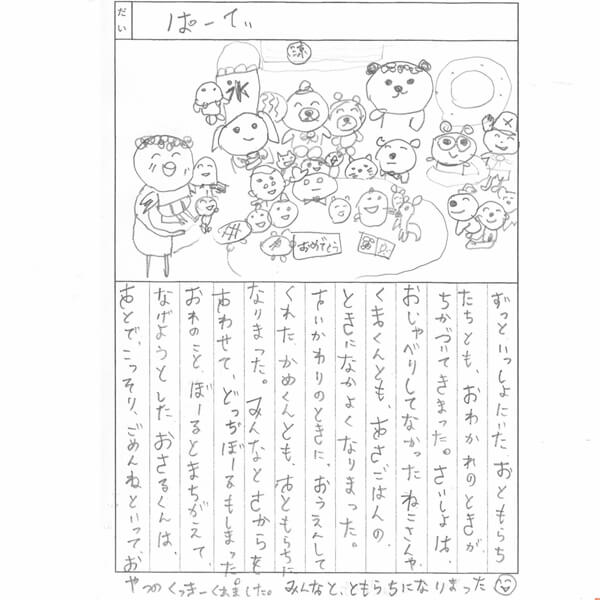 だい
ぱーてぃ
凉
氷
おめでとう
ずっといっしょにいた、おともらち
たちとも、おわかれのときが、
ちかづいてきまった。さいしょは、
おしゃべりしてなかったねこさんや、
くまくんとも、あさごはんの、
ときになかよくなりまった。
すいかわりのときに、おうえんして
くれたかめくんとも、おともらちに
なりまった。みんなとさからを
あわせて、どっぢぼーるもしまった。
おれのこと、ぼーるとまちがえて、
なげようとしたおさるくんは、
あとで、こっそり、ごめんねといっておやつのくっきーくれました。みんなと、ともらちになりまった